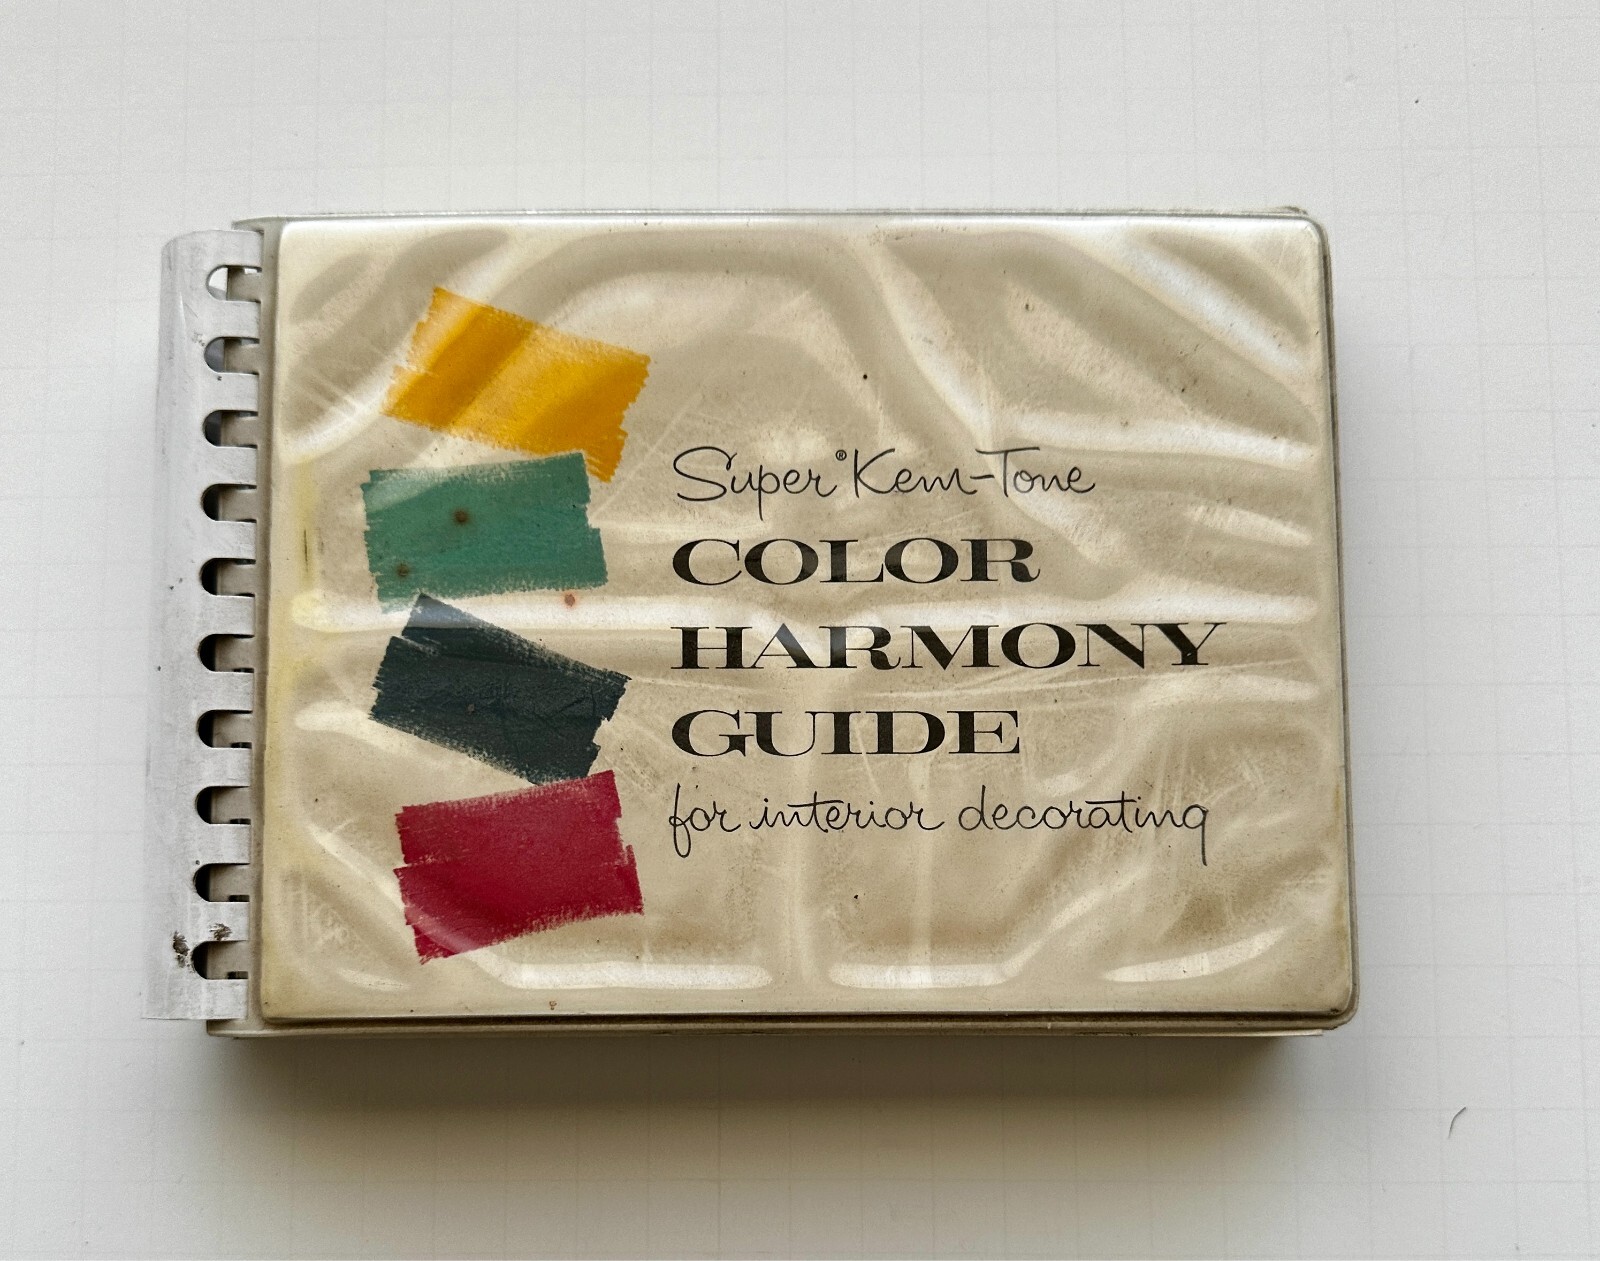 Super® Kem-Tone
COLOR
HARMONY
GUIDE
for interior decorating